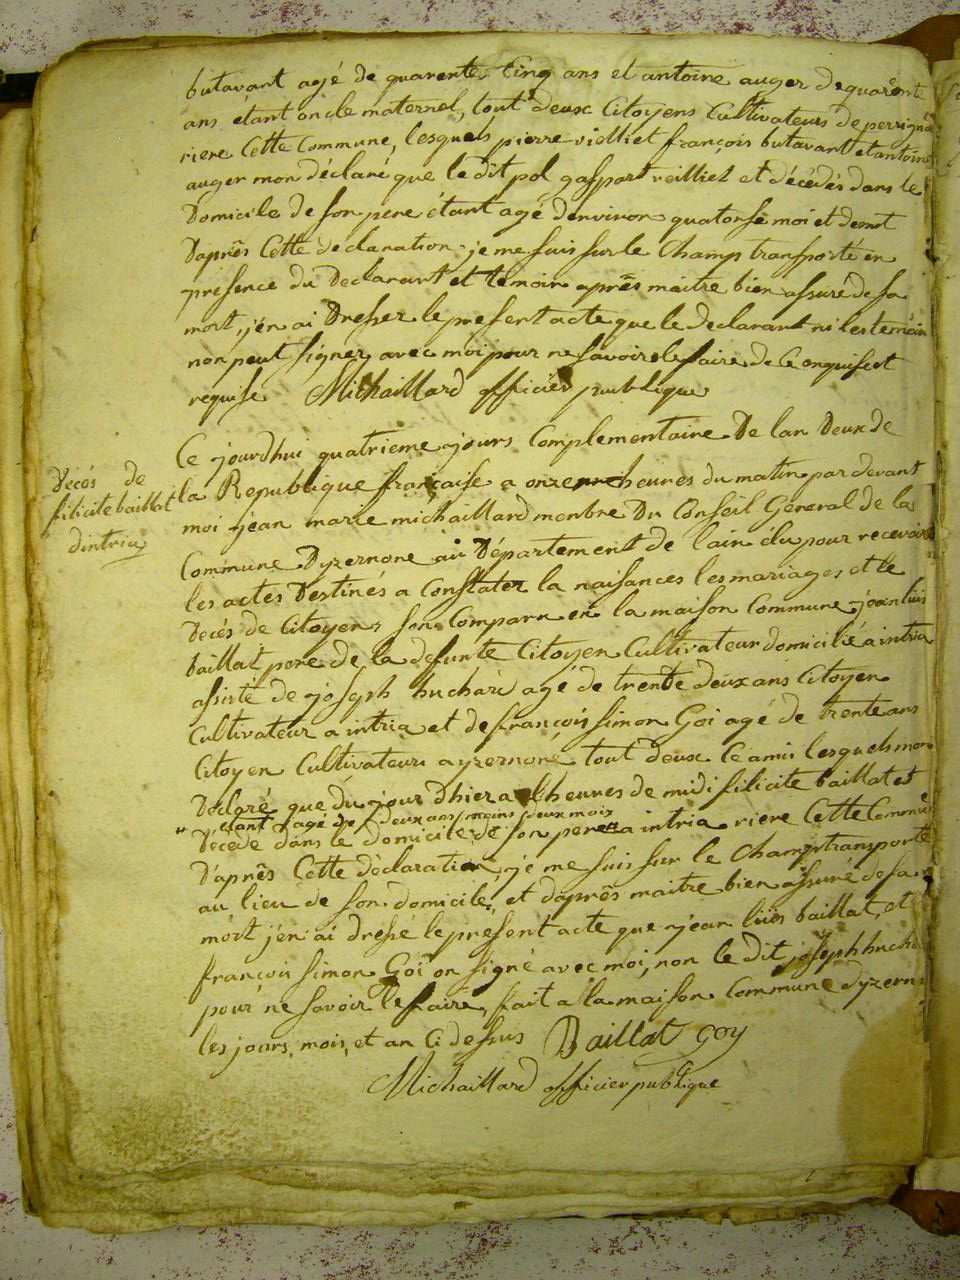 butavant agé de quarente Cinq ans et antoine auger de quarente
ans étant oncle maternel, tout deux Citoyens Cultivateurs de perrigna
riere Cette Commune, lesquels pierre vielliet françois butavant et antoine
auger mon déclaré que le dit pol gaspart veilliet et décédés dans le
Domicile de son pere étant agé denviron quatorse moi et demt
Daprês Cette declaration je me suis sur le Champ transporté en
présence du Declarant et temoin aprês maitre bien assuré de sa
mort, j'en ai Dresser le present acte que le declarant ni les temoin
non peut signer avec moi pour ne savoir le faire de Ce enquise et
requise Michaillard officier publique
Ce jourdhui quatrieme jours Complementaire De lan Deux de
la Republique française a onze heures du matin par devant
moi jean marie michaillard menbre Du Conseil Géneral de la
Commune Dyzernone au Département de lain élu pour recevoir
les actes Destinés a Constater la naisances les mariages et le
Decés de Citoyens son Comparu en la maison Commune jean luis
baillat pere de la defunte Citoyen Cultivateur domicilié a intria
assisté de joseph huchard agé de trente deux ans Citoyen
Cultivateur a intria et de françois simon Goi agé de trente ans
Citoyen Cultivateur a yzernone tout deux Cé amis lesquels mon
Déclaré que du jour dhier a heures de midi filicite baillat et
étant agé de deux ans moins deux mois
Decede dans le domicile de son pere a intria riere Cette Commune
D'aprês Cette déclaration, je me suis sur le Champ transporté
au lieu de son domicile, et daprês maitre bien assuré de sa
mort jen ai dressé le présent acte que jean luis baillat, et
françois simon Goi on signé avec moi, non le dit joseph hucha
pour ne savoir le faire, fait a la maison Commune dyzern
les jours, mois, et an Ci dessus Baillat goy
Michaillard officier publique
Decés de
filicite baillat
dintria